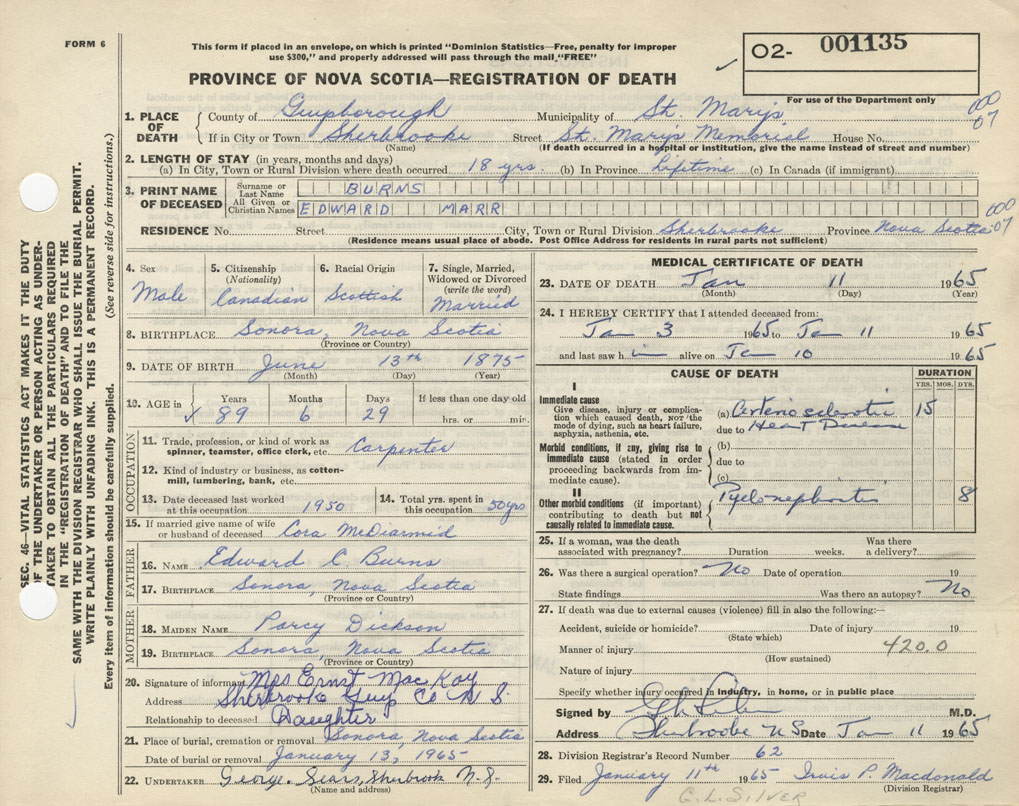 FORM 6
This form if placed in an envelope, on which is printed "Dominion Statistics—Free, penalty for improper
use $300," and properly addressed will pass through the mail "FREE"
O2- 001135
PROVINCE OF NOVA SCOTIA—REGISTRATION OF DEATH
For use of the Department only
SEC. 46—VITAL STATISTICS ACT MAKES IT THE DUTY
OF THE UNDERTAKER OR PERSON ACTING AS UNDER-
TAKER TO OBTAIN ALL THE PARTICULARS REQUIRED
IN THE "REGISTRATION OF DEATH" AND TO FILE THE
SAME WITH THE DIVISION REGISTRAR WHO SHALL ISSUE THE BURIAL PERMIT.
WRITE PLAINLY WITH UNFADING INK. THIS IS A PERMANENT RECORD.
Every item of information should be carefully supplied. (See reverse side for instructions.)
1. PLACE OF DEATH County of Guysborough Municipality of St. Mary's 000 07
If in City or Town Sherbrooke Street St. Marys Memorial House No.
(Name) (If death occurred in a hospital or institution, give the name instead of street and number)
2. LENGTH OF STAY (in years, months and days)
(a) In City, Town or Rural Division where death occurred 18 yrs. (b) In Province Lifetime (c) In Canada (if immigrant)
3. PRINT NAME OF DECEASED Surname or Last Name BURNS
All Given or Christian Names EDWARD MARR
RESIDENCE No. Street City, Town or Rural Division Sherbrooke Province Nova Scotia 000 07
(Residence means usual place of abode. Post Office Address for residents in rural parts not sufficient)
4. Sex Male
5. Citizenship (Nationality) Canadian
6. Racial Origin Scottish
7. Single, Married, Widowed or Divorced (write the word) Married
8. BIRTHPLACE Sonora, Nova Scotia
(Province or Country)
9. DATE OF BIRTH June 13th 1875
(Month) (Day) (Year)
10. AGE in Years 89 Months 6 Days 29 If less than one day old hrs. or min.
OCCUPATION
11. Trade, profession, or kind of work as
spinner, teamster, office clerk, etc Carpenter
12. Kind of industry or business, as cotton-
mill, lumbering, bank, etc.
13. Date deceased last worked at this occupation 1950
14. Total yrs. spent in this occupation 50 yrs
15. If married give name of wife
or husband of deceased Cora McDiarmid
FATHER
16. NAME Edward C. Burns
17. BIRTHPLACE Sonora, Nova Scotia
(Province or Country)
MOTHER
18. MAIDEN NAME Parcy Dickson
19. BIRTHPLACE Sonora, Nova Scotia
(Province or Country)
20. Signature of informant Mrs Ernst MacKay
Address Sherbrooke Guy Co N S
Relationship to deceased Daughter
21. Place of burial, cremation or removal Sonora, Nova Scotia
Date of burial or removal January 13, 1965
22. UNDERTAKER George Sears, Sherbrook N.S.
(Name and address)
MEDICAL CERTIFICATE OF DEATH
23. DATE OF DEATH Jan 11 1965
(Month) (Day) (Year)
24. I HEREBY CERTIFY that I attended deceased from:
Jan 3 1965 to Jan 11 1965
and last saw h im alive on Jan 10 1965
CAUSE OF DEATH
DURATION
YRS. MOS. DYS.
I
Immediate cause
Give disease, injury or complica-
tion which caused death, NOT the
mode of dying, such as heart failure,
asphyxia, asthenia, etc.
(a) Arteriosclerotic 15
due to Heart Disease
Morbid conditions, if any, giving rise to
immediate cause (stated in order
proceeding backwards from im-
mediate cause).
(b)
due to
(c)
II
Other morbid conditions (if important)
contributing to death but not
causally related to immediate cause.
Pyelonephritis 8
25. If a woman, was the death
associated with pregnancy? Duration weeks. Was there a delivery?
26. Was there a surgical operation? No Date of operation 19
State findings Was there an autopsy? No
27. If death was due to external causes (violence) fill in also the following:—
Accident, suicide or homicide? Date of injury 19
(State which)
Manner of injury 420.0
(How sustained)
Nature of injury
Specify whether injury occurred in Industry, in home, or in public place
Signed by M.D.
Address Sherbrooke N S Date Jan 11 1965
28. Division Registrar's Record Number 62
29. Filed January 11th 1965 Irvis P. Macdonald
(Division Registrar)
G.L. SILVER